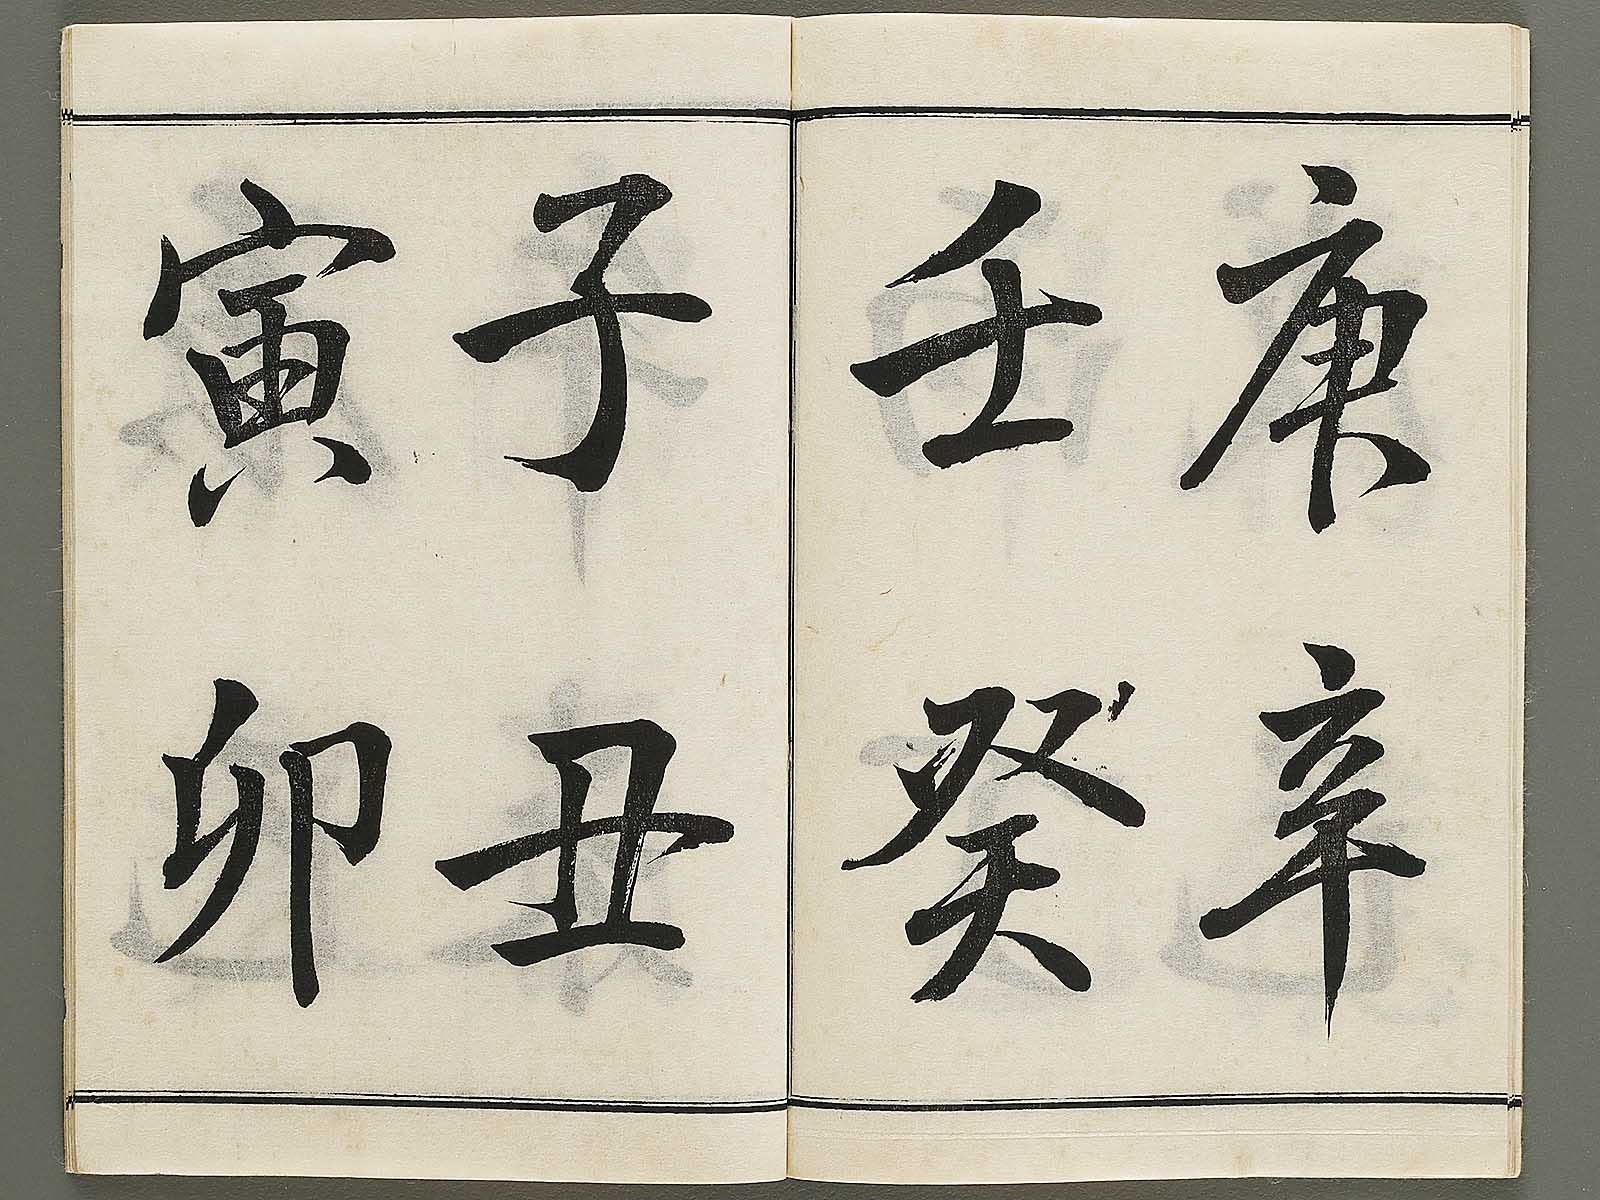 庚辛
壬癸
子丑
寅卯